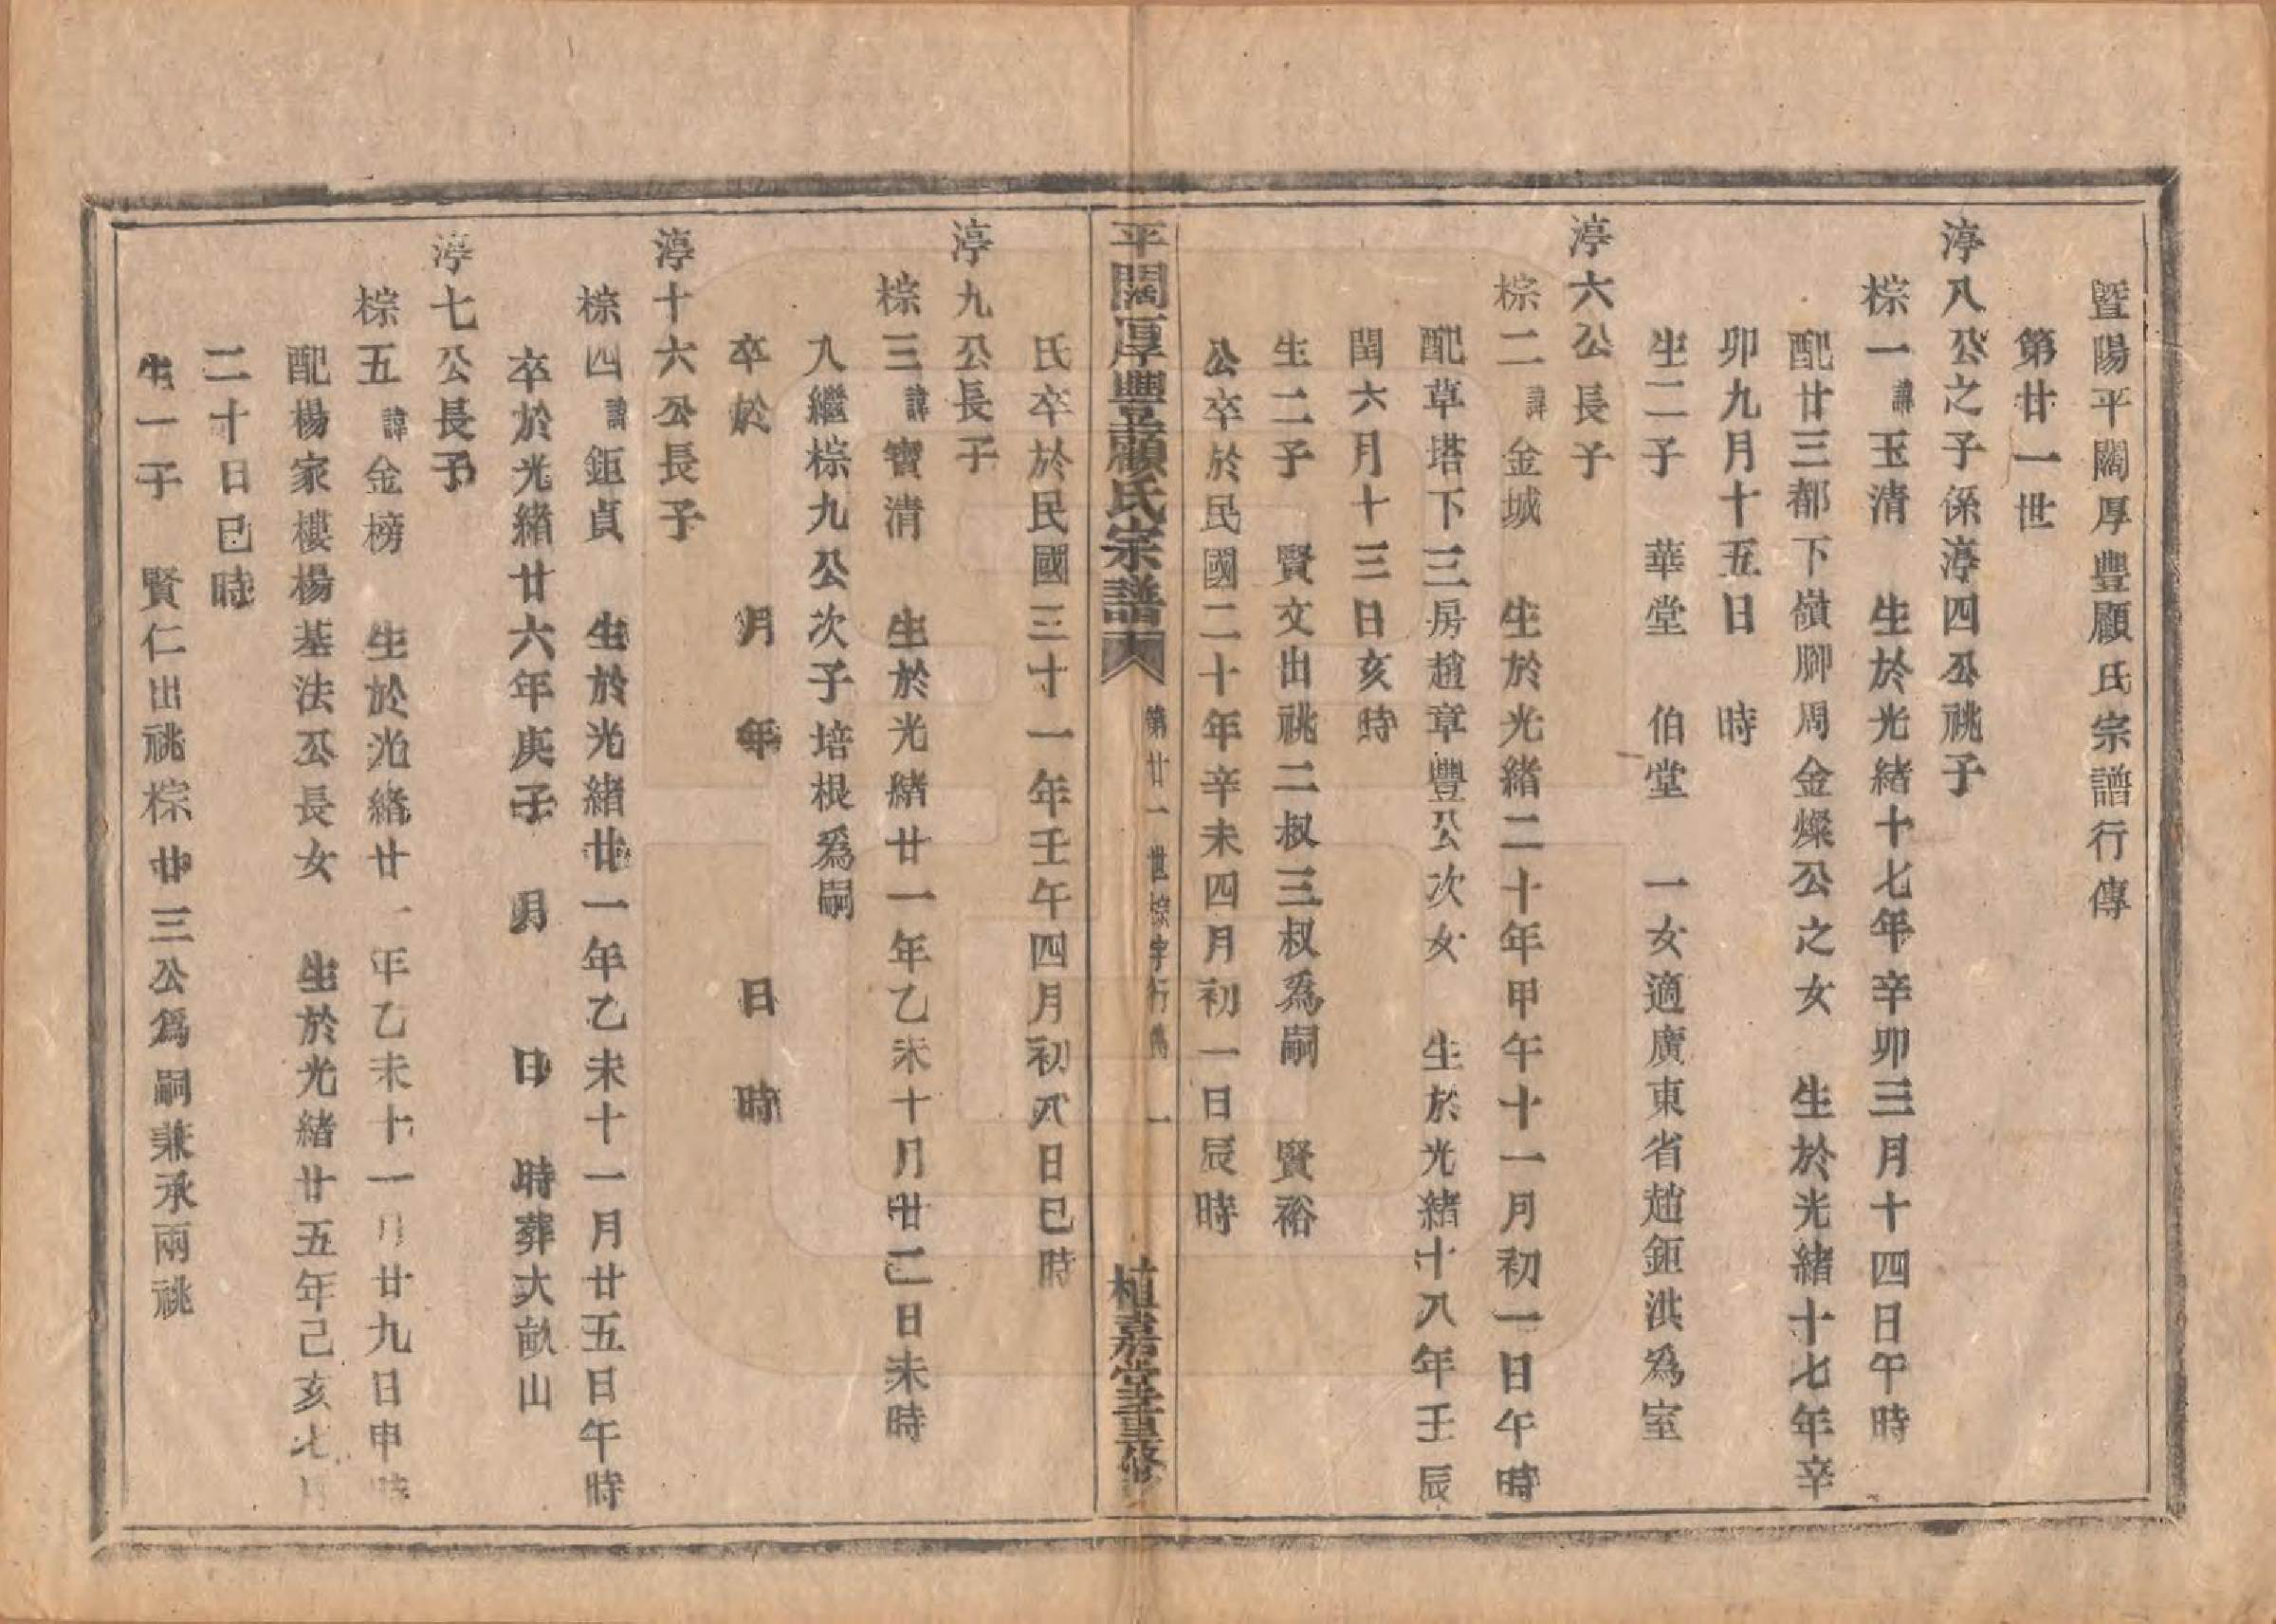 暨陽平闊厚豐顧氏宗譜行傳
第廿一世
淳八公之子係淳四公祧子
棕一諱玉清　生於光緒十七年辛卯三月十四日午時
配廿三都下嶺腳周金燦公之女　生於光緒十七年辛
卯九月十五日　時
生二子　華堂　伯堂　一女適廣東省趙鉅洪為室
淳六公長子
棕二諱金城　生於光緒二十年甲午十一月初一日午時
配草塔下三房趙章豐公次女　生於光緒十八年壬辰
閏六月十三日亥時
生二子　賢文出祧二叔三叔為嗣　賢裕
公卒於民國二十年辛未四月初一日辰時
平闊厚豐顧氏宗譜　第廿一世棕字行傳　一　植嘉堂重修
氏卒於民國三十一年壬午四月初八日巳時
淳九公長子
棕三諱寶清　生於光緒廿一年乙未十月廿二日未時
入繼棕九公次子培根為嗣
卒於　月　年　日　時
淳十六公長子
棕四諱鉅貞　生於光緒廿一年乙未十一月廿五日午時
卒於光緒廿六年庚子　月　日　時葬大畝山
淳七公長子
棕五諱金榜　生於光緒廿一年乙未十一月廿九日申時
配楊家樓楊基法公長女　生於光緒廿五年己亥七月
二十日巳時
生一子　賢仁出祧棕廿三公為嗣兼承兩祧